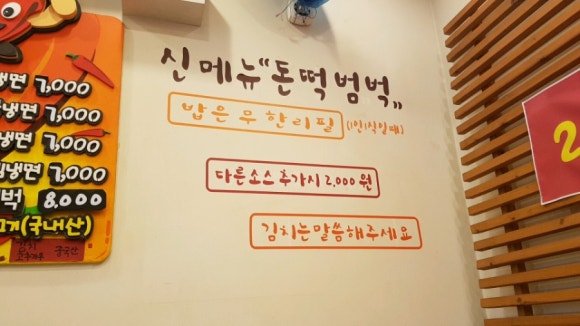 신메뉴"돈떡범벅"
밥은 무한리필 (1인1식일때)
다른소스 추가시 2,000원
김치는말씀해주세요
냉면 7,000
냉면 7,000
냉면 7,000
냉면 7,000
벅 8,000
(국내산)
중국산
2